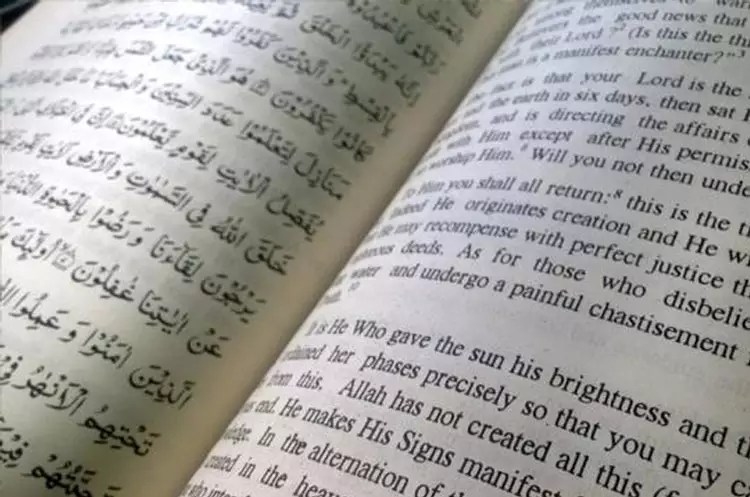 إِنَّهُ يَبْدَؤُا الْخَلْقَ ثُمَّ
بِالْقِسْطِ وَالَّذِيْنَ كَفَرُوْا لَهُمْ شَرَابٌ
كَانُوْا يَكْفُرُوْنَ هُوَ الَّذِيْ جَعَلَ الشَّمْسَ
مَنَازِلَ لِتَعْلَمُوْا عَدَدَ السِّنِيْنَ وَالْحِسَابَ مَا خَلَقَ اللهُ
يُفَصِّلُ الْاٰيٰتِ لِقَوْمٍ يَّعْلَمُوْنَ اِنَّ فِي اخْتِلَافِ
خَلَقَ اللهُ فِي السَّمٰوٰتِ وَالْاَرْضِ لَاٰيٰتٍ
يَرْجُوْنَ لِقَآءَنَا وَرَضُوْا بِالْحَيٰوةِ الدُّنْيَا
عَنْ اٰيٰتِنَا غٰفِلُوْنَ اُولٰٓئِكَ
الَّذِيْنَ اٰمَنُوْا وَعَمِلُوا
تَحْتِهِمُ الْاَنْهٰرُ فِيْ
تَحِيَّتُهُمْ فِيْهَا
among themselves to warn
the good news that
their Lord?² (Is this the th
is a manifest enchanter?"³
fact is that your Lord is the
and the earth in six days, then sat
and is directing the affairs
with Him except after His permis
worship Him.⁶ Will you not then unde
To Him you shall all return;⁸ this is the t
Indeed He originates creation and He wi
He may recompense with perfect justice th
deeds. As for those who disbelie
water and undergo a painful chastisement
It is He Who gave the sun his brightness and th
ordained her phases precisely so that you may c
from this. Allah has not created all this (
end. He makes His Signs manifest
In the alternation of
created in the heav
who